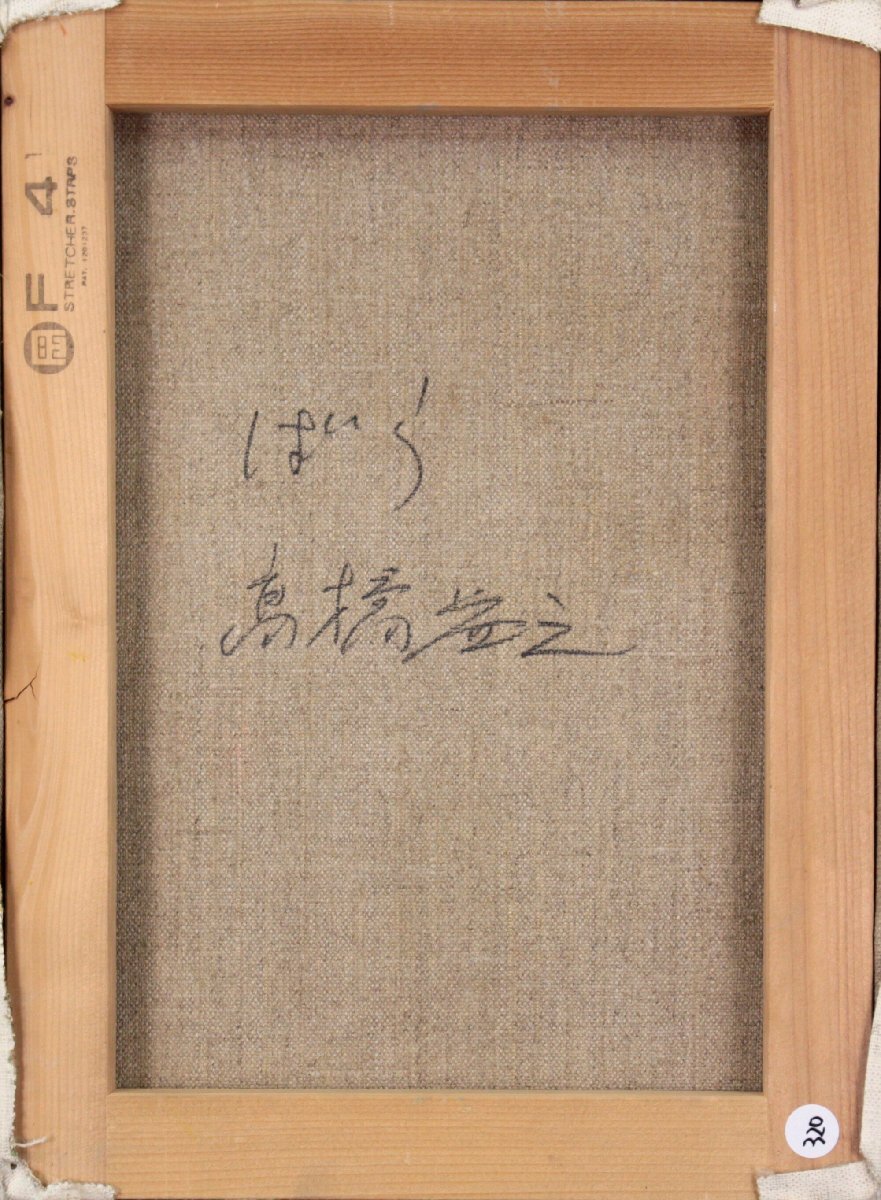 F 4
STRETCHER.STRPS
PAT. 1261237
ばら
高橋安之
320